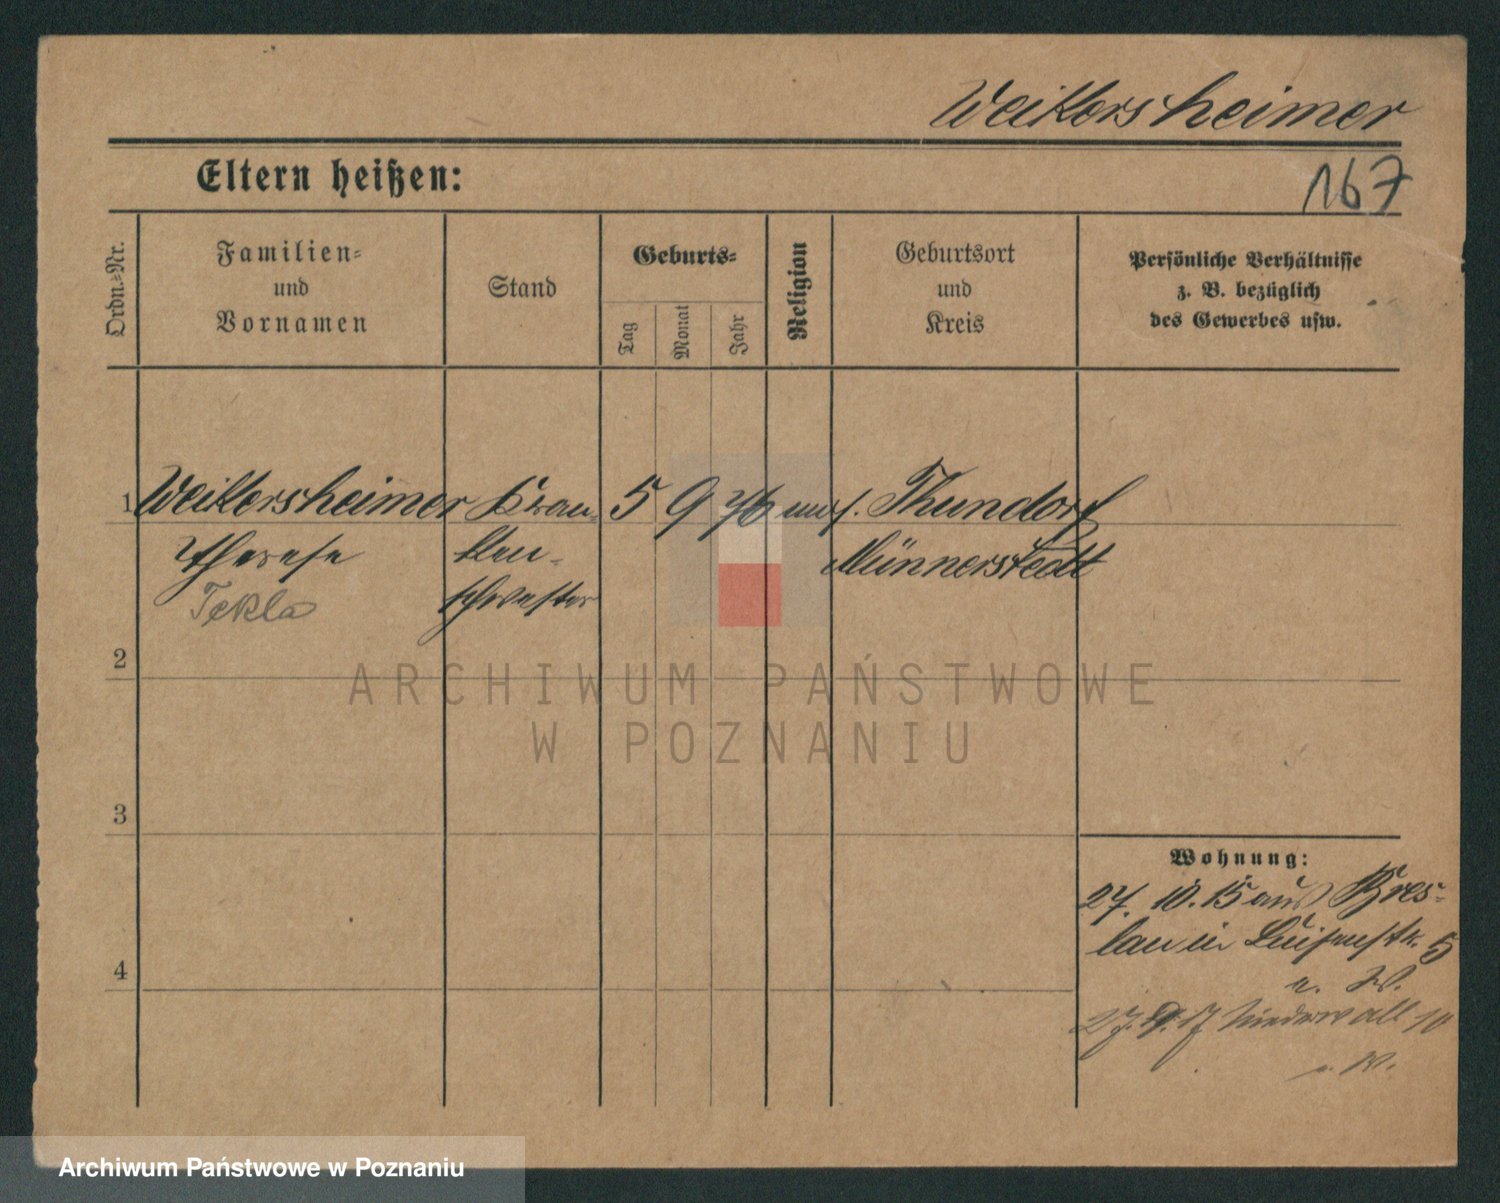 Weikersheimer
Eltern heißen:
167
Ordn.-Nr.
Familien-
und
Vornamen
Stand
Geburts-
Tag
Monat
Jahr
Religion
Geburtsort
und
Kreis
Persönliche Verhältnisse
z. B. bezüglich
des Gewerbes usw.
1 Weikersheimer Kran- 5 9 76 Thundorf
Therese ken- Münnerstedt
Tekla schwester
2
3
4
Wohnung:
27. 10. 15 aus Bres-
lau in Luisenstr. 5
a. W.
27. 17 Niederwall 10
a. W.
ARCHIWUM PAŃSTWOWE
W POZNANIU
Archiwum Państwowe w Poznaniu